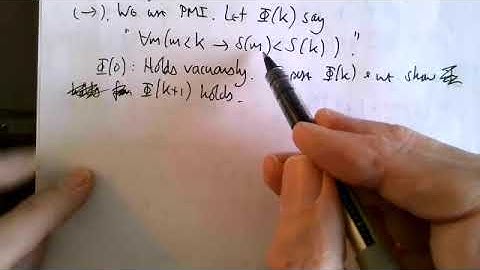 (→). We use PMI. Let Φ(k) say
" ∀m(m<k → S(m)<S(k)) ."
Φ(0): Holds vacuously. Φ(k) & wt show
Φ(k+1) holds.